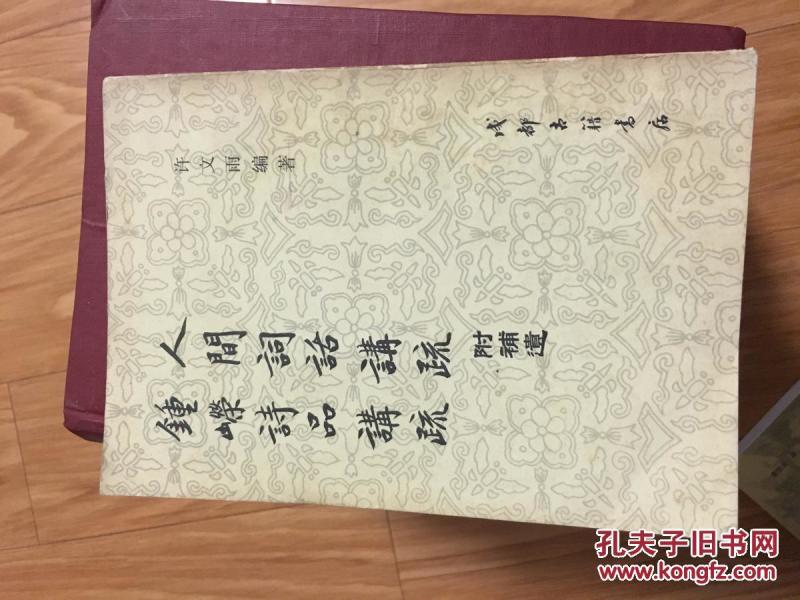 鍾嶸詩品講疏
人間詞話講疏
附補遺
许文雨编著
成都古籍書店
孔夫子旧书网
www.kongfz.com